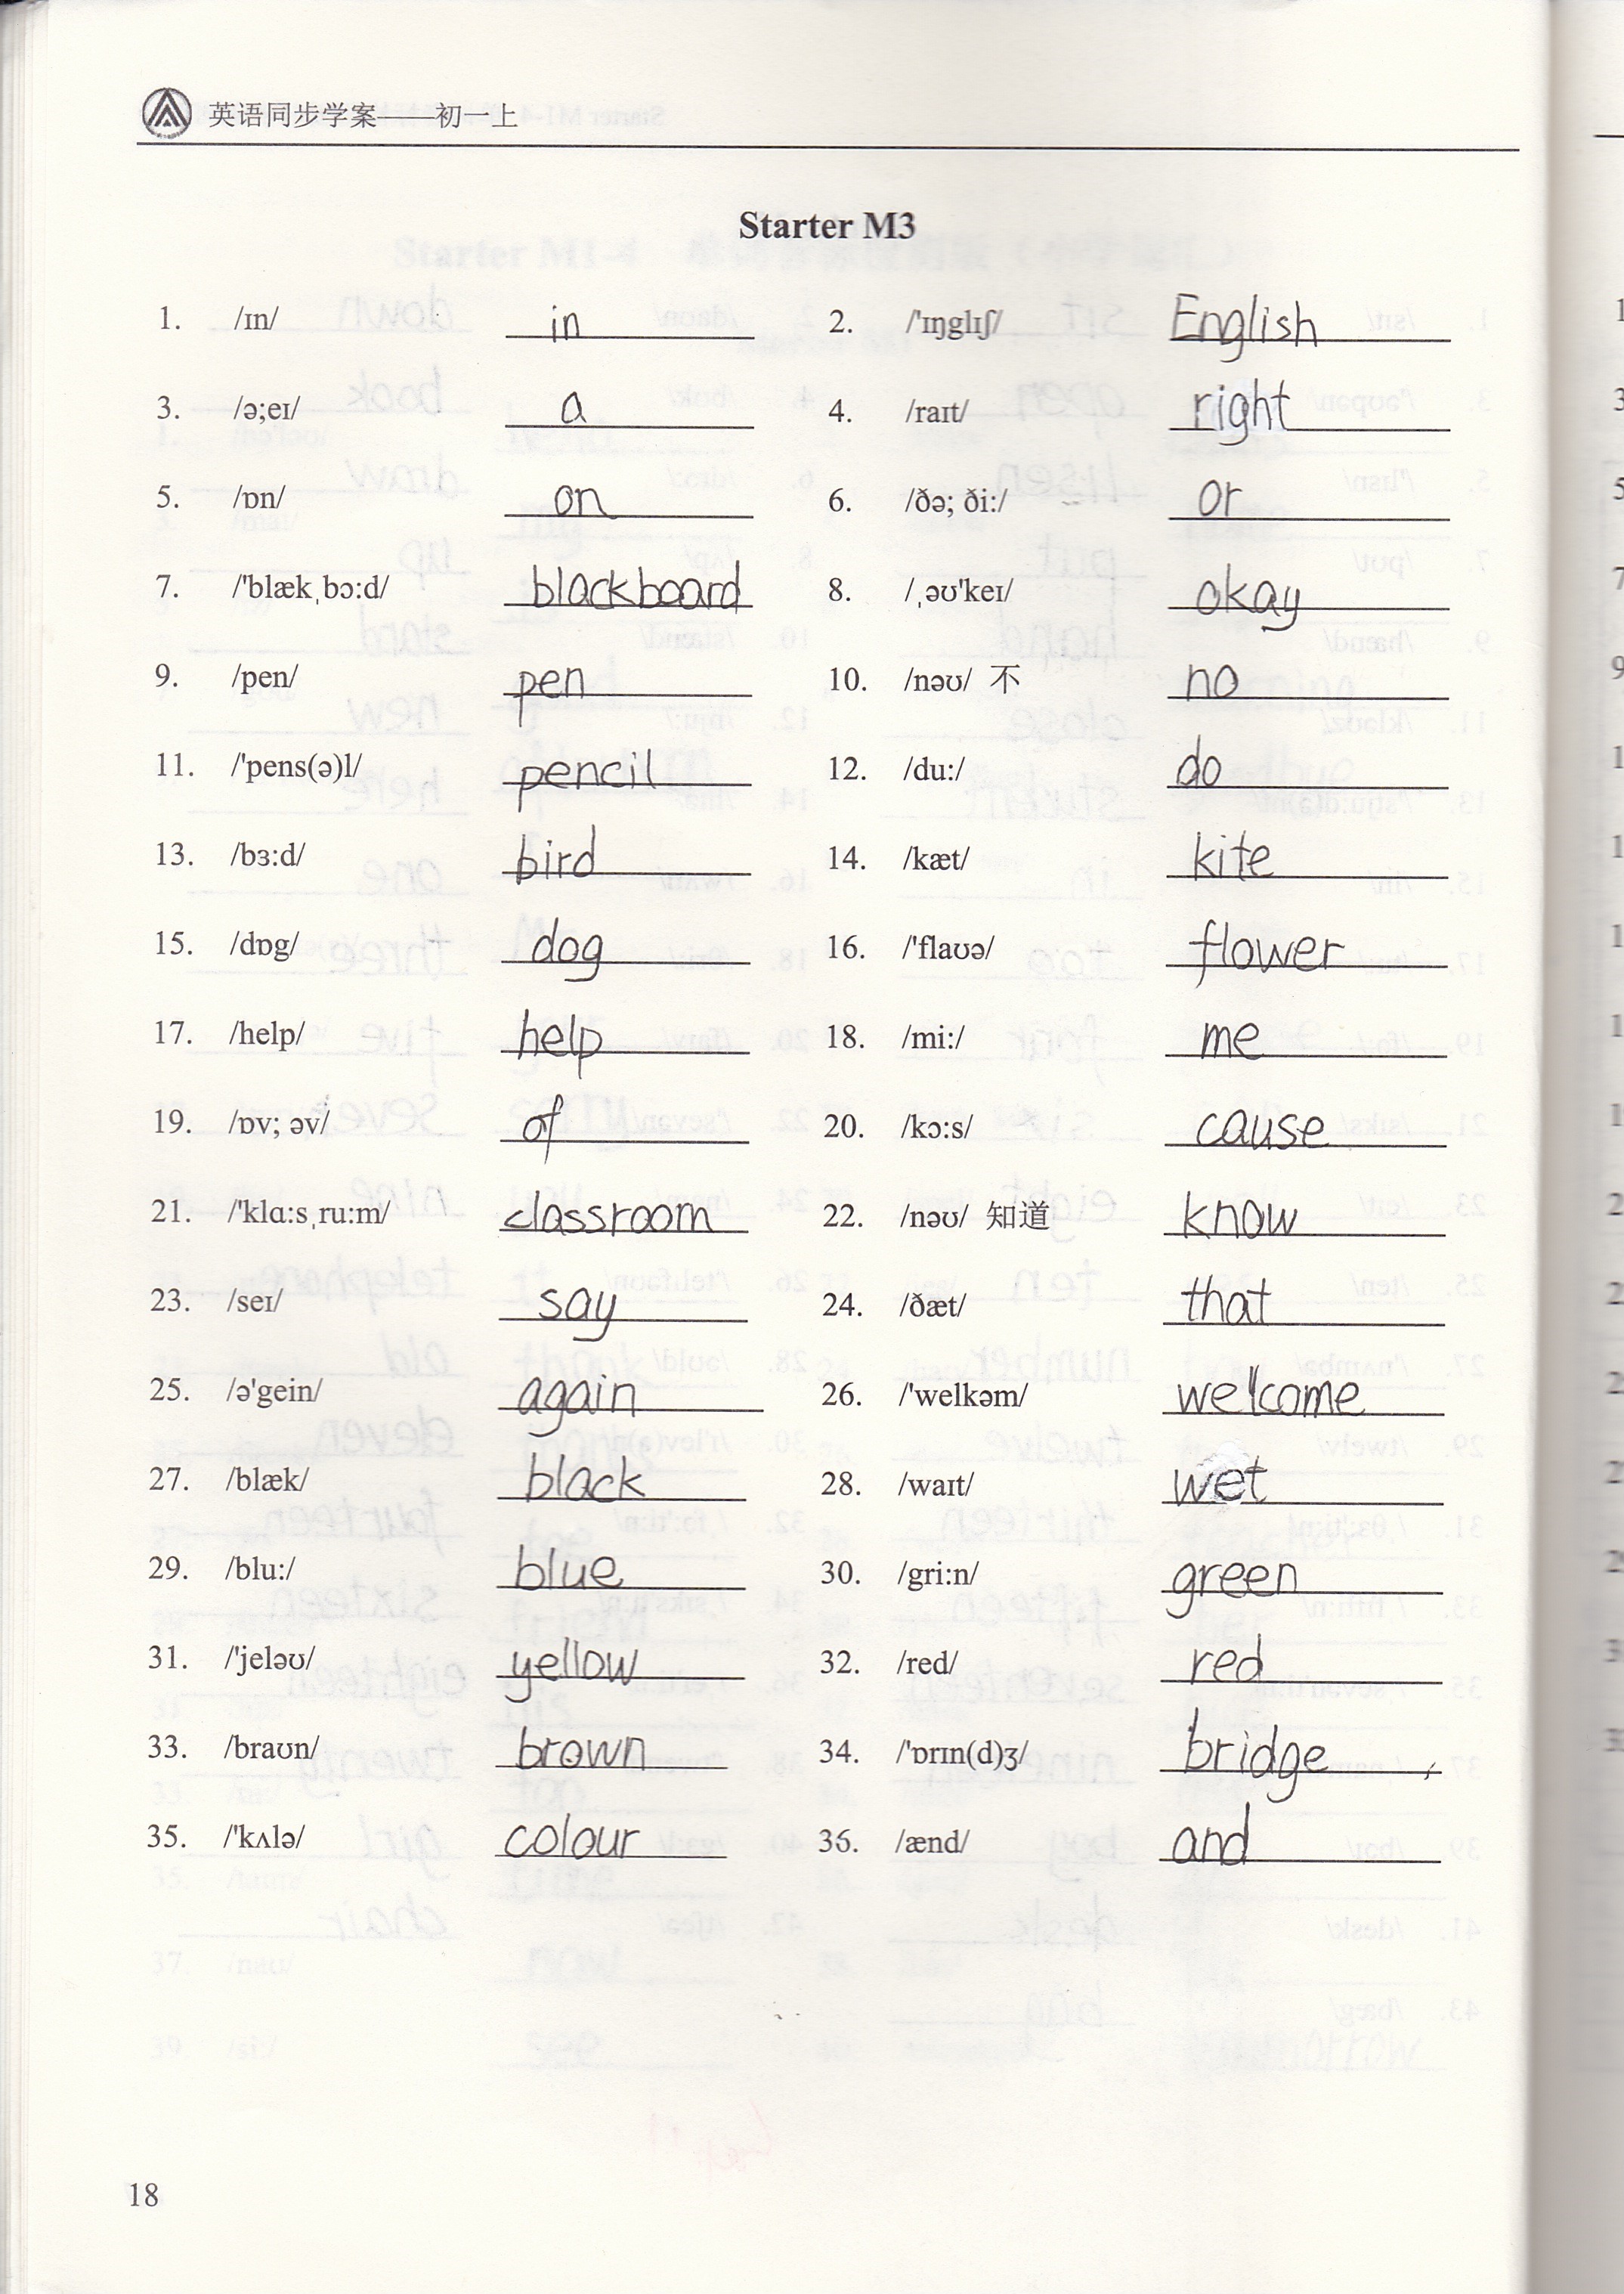 英语同步学案——初一上
Starter M3
1. /ɪn/ in 2. /'ɪŋglɪʃ/ English
3. /ə;eɪ/ a 4. /raɪt/ right
5. /ɒn/ on 6. /ðə; ði:/ or
7. /'blækˌbɔ:d/ blackboard 8. /ˌəʊ'keɪ/ okay
9. /pen/ pen 10. /nəʊ/ 不 no
11. /'pens(ə)l/ pencil 12. /du:/ do
13. /bɜ:d/ bird 14. /kæt/ kite
15. /dɒg/ dog 16. /'flaʊə/ flower
17. /help/ help 18. /mi:/ me
19. /ɒv; əv/ of 20. /kɔ:s/ cause
21. /'klɑ:sˌru:m/ classroom 22. /nəʊ/ 知道 know
23. /seɪ/ say 24. /ðæt/ that
25. /ə'gein/ again 26. /'welkəm/ welcome
27. /blæk/ black 28. /waɪt/ wet
29. /blu:/ blue 30. /gri:n/ green
31. /'jeləʊ/ yellow 32. /red/ red
33. /braʊn/ brown 34. /'ɒrɪn(d)ʒ/ bridge
35. /'kʌlə/ colour 36. /ænd/ and
18